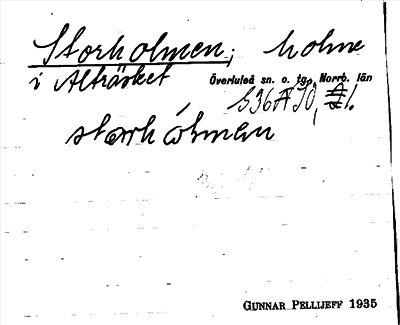 Storholmen, holme
i Alträsket Överluleå sn. o. tg., Norrb. län
storhólmen
GUNNAR PELLIJEFF 1935